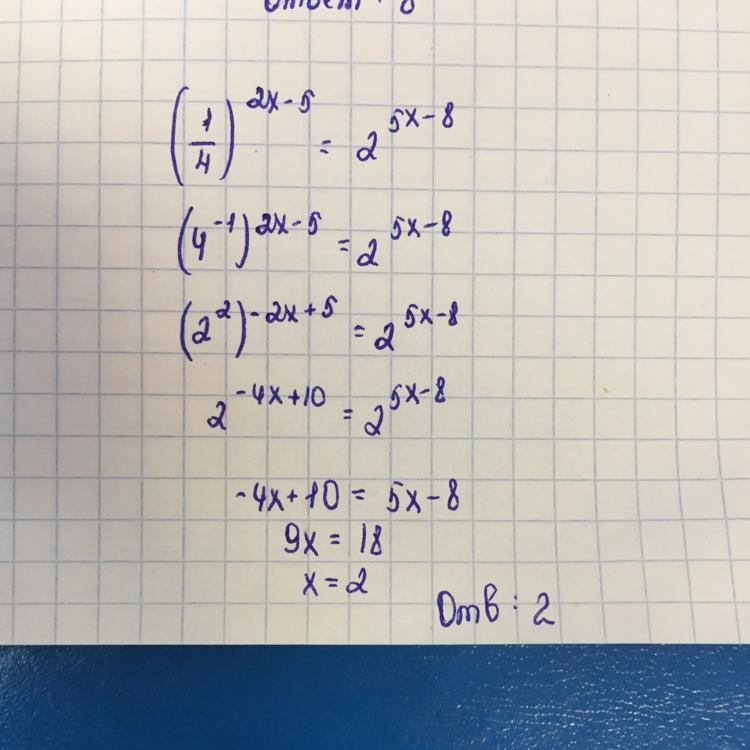 Ответ : 8
(1/4)^(2x-5) = 2^(5x-8)
(4^(-1))^(2x-5) = 2^(5x-8)
(2^2)^(-2x+5) = 2^(5x-8)
2^(-4x+10) = 2^(5x-8)
-4x+10 = 5x-8
9x = 18
x = 2
Отв : 2